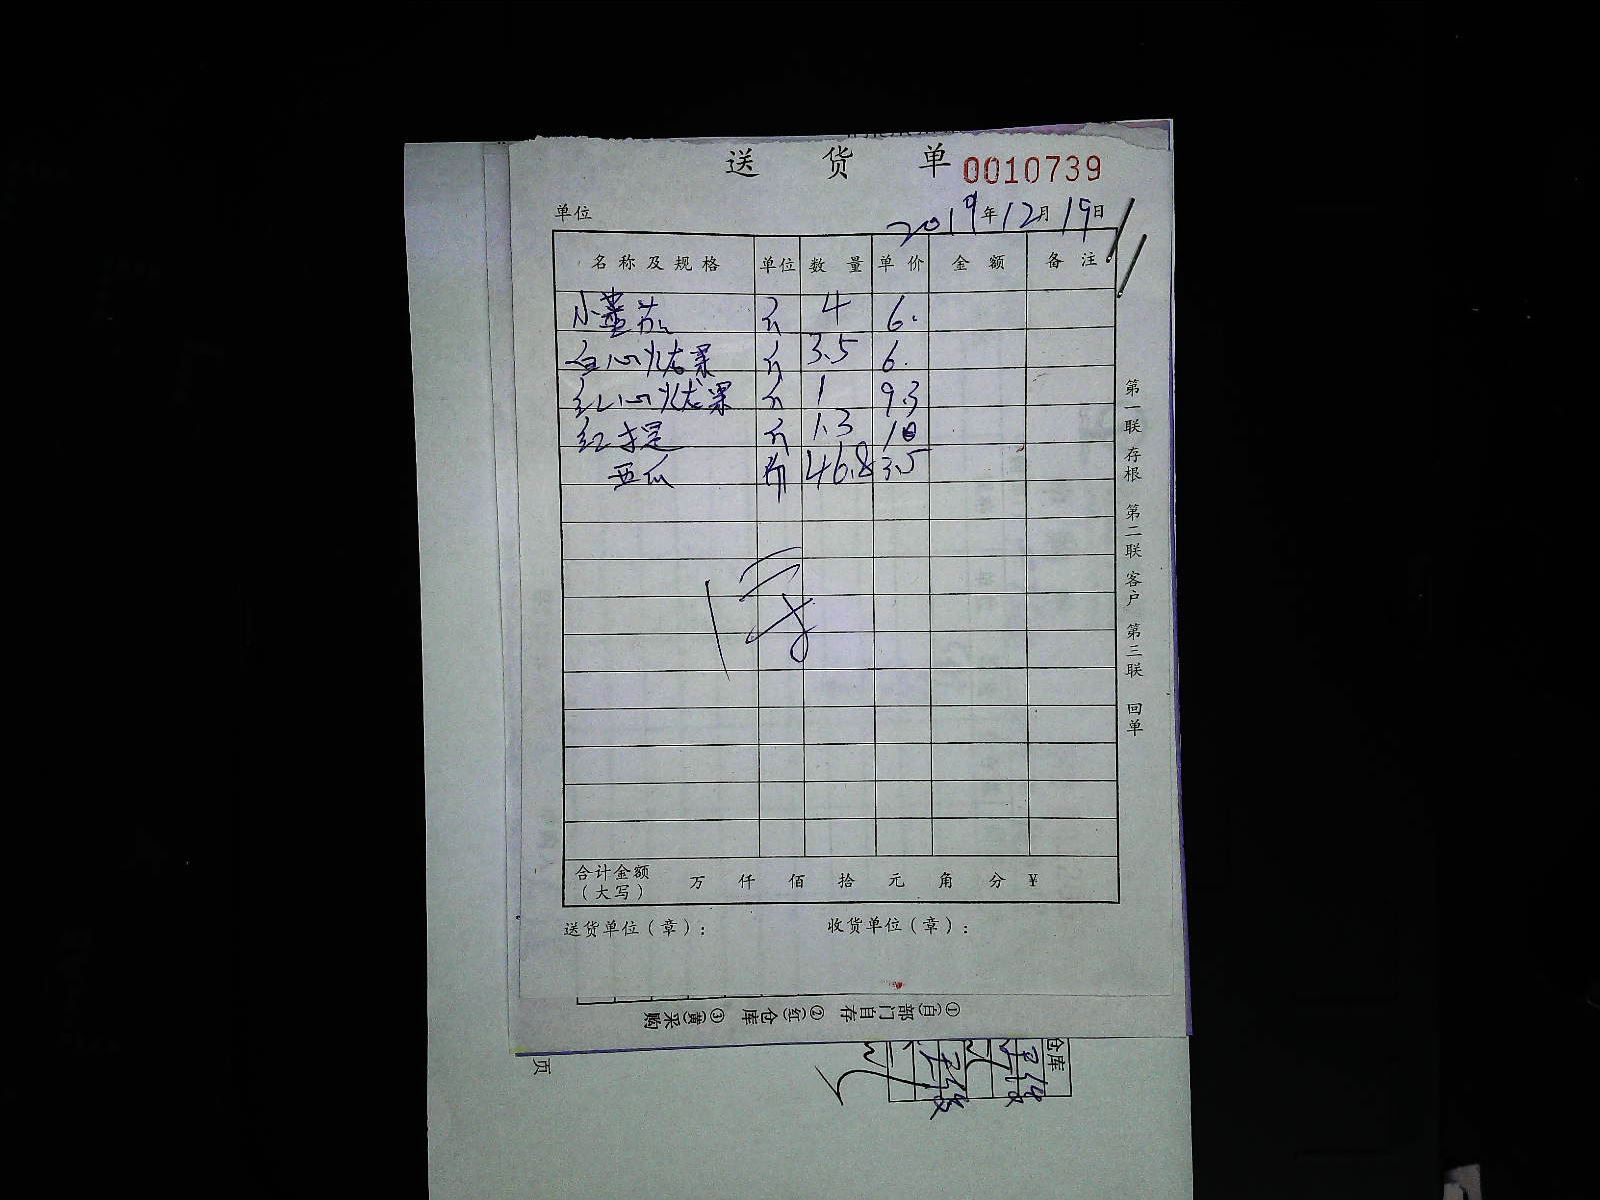 送 货 单 0010739
单位 2019年12月19日
名称及规格 单位 数量 单价 金额 备注
小番茄 斤 4 6.
白心火龙果 斤 3.5 6.
红心火龙果 斤 1 9.3
红提 斤 1.3 10
西瓜 斤 46.8 3.5
合计金额(大写) 万 仟 佰 拾 元 角 分 ¥
送货单位(章): 收货单位(章):
第一联 存根 第二联 客户 第三联 回单
①(白)部门自存 ②(红)仓库 ③(黄)采购
仓库
页